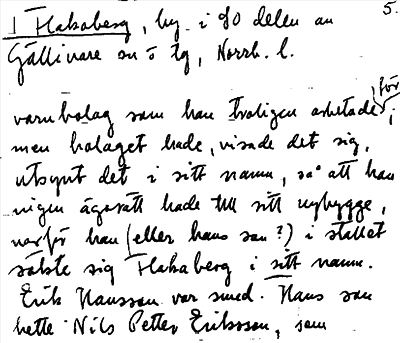 5.
1 Flakaberg, by i sö delen av
Gällivare sn o tg, Norrb. l.
varubolag som han troligen arbetade för,
men bolaget hade, visade det sig,
utsynt det i sitt namn, så att han
ingen äganrätt hade till sitt nybygge,
varför han (eller hans son?) i stället
sökte sig Flakaberg i sitt namn.
Erik Hansson var smed. Hans son
hette Nils Petter Eriksson, som